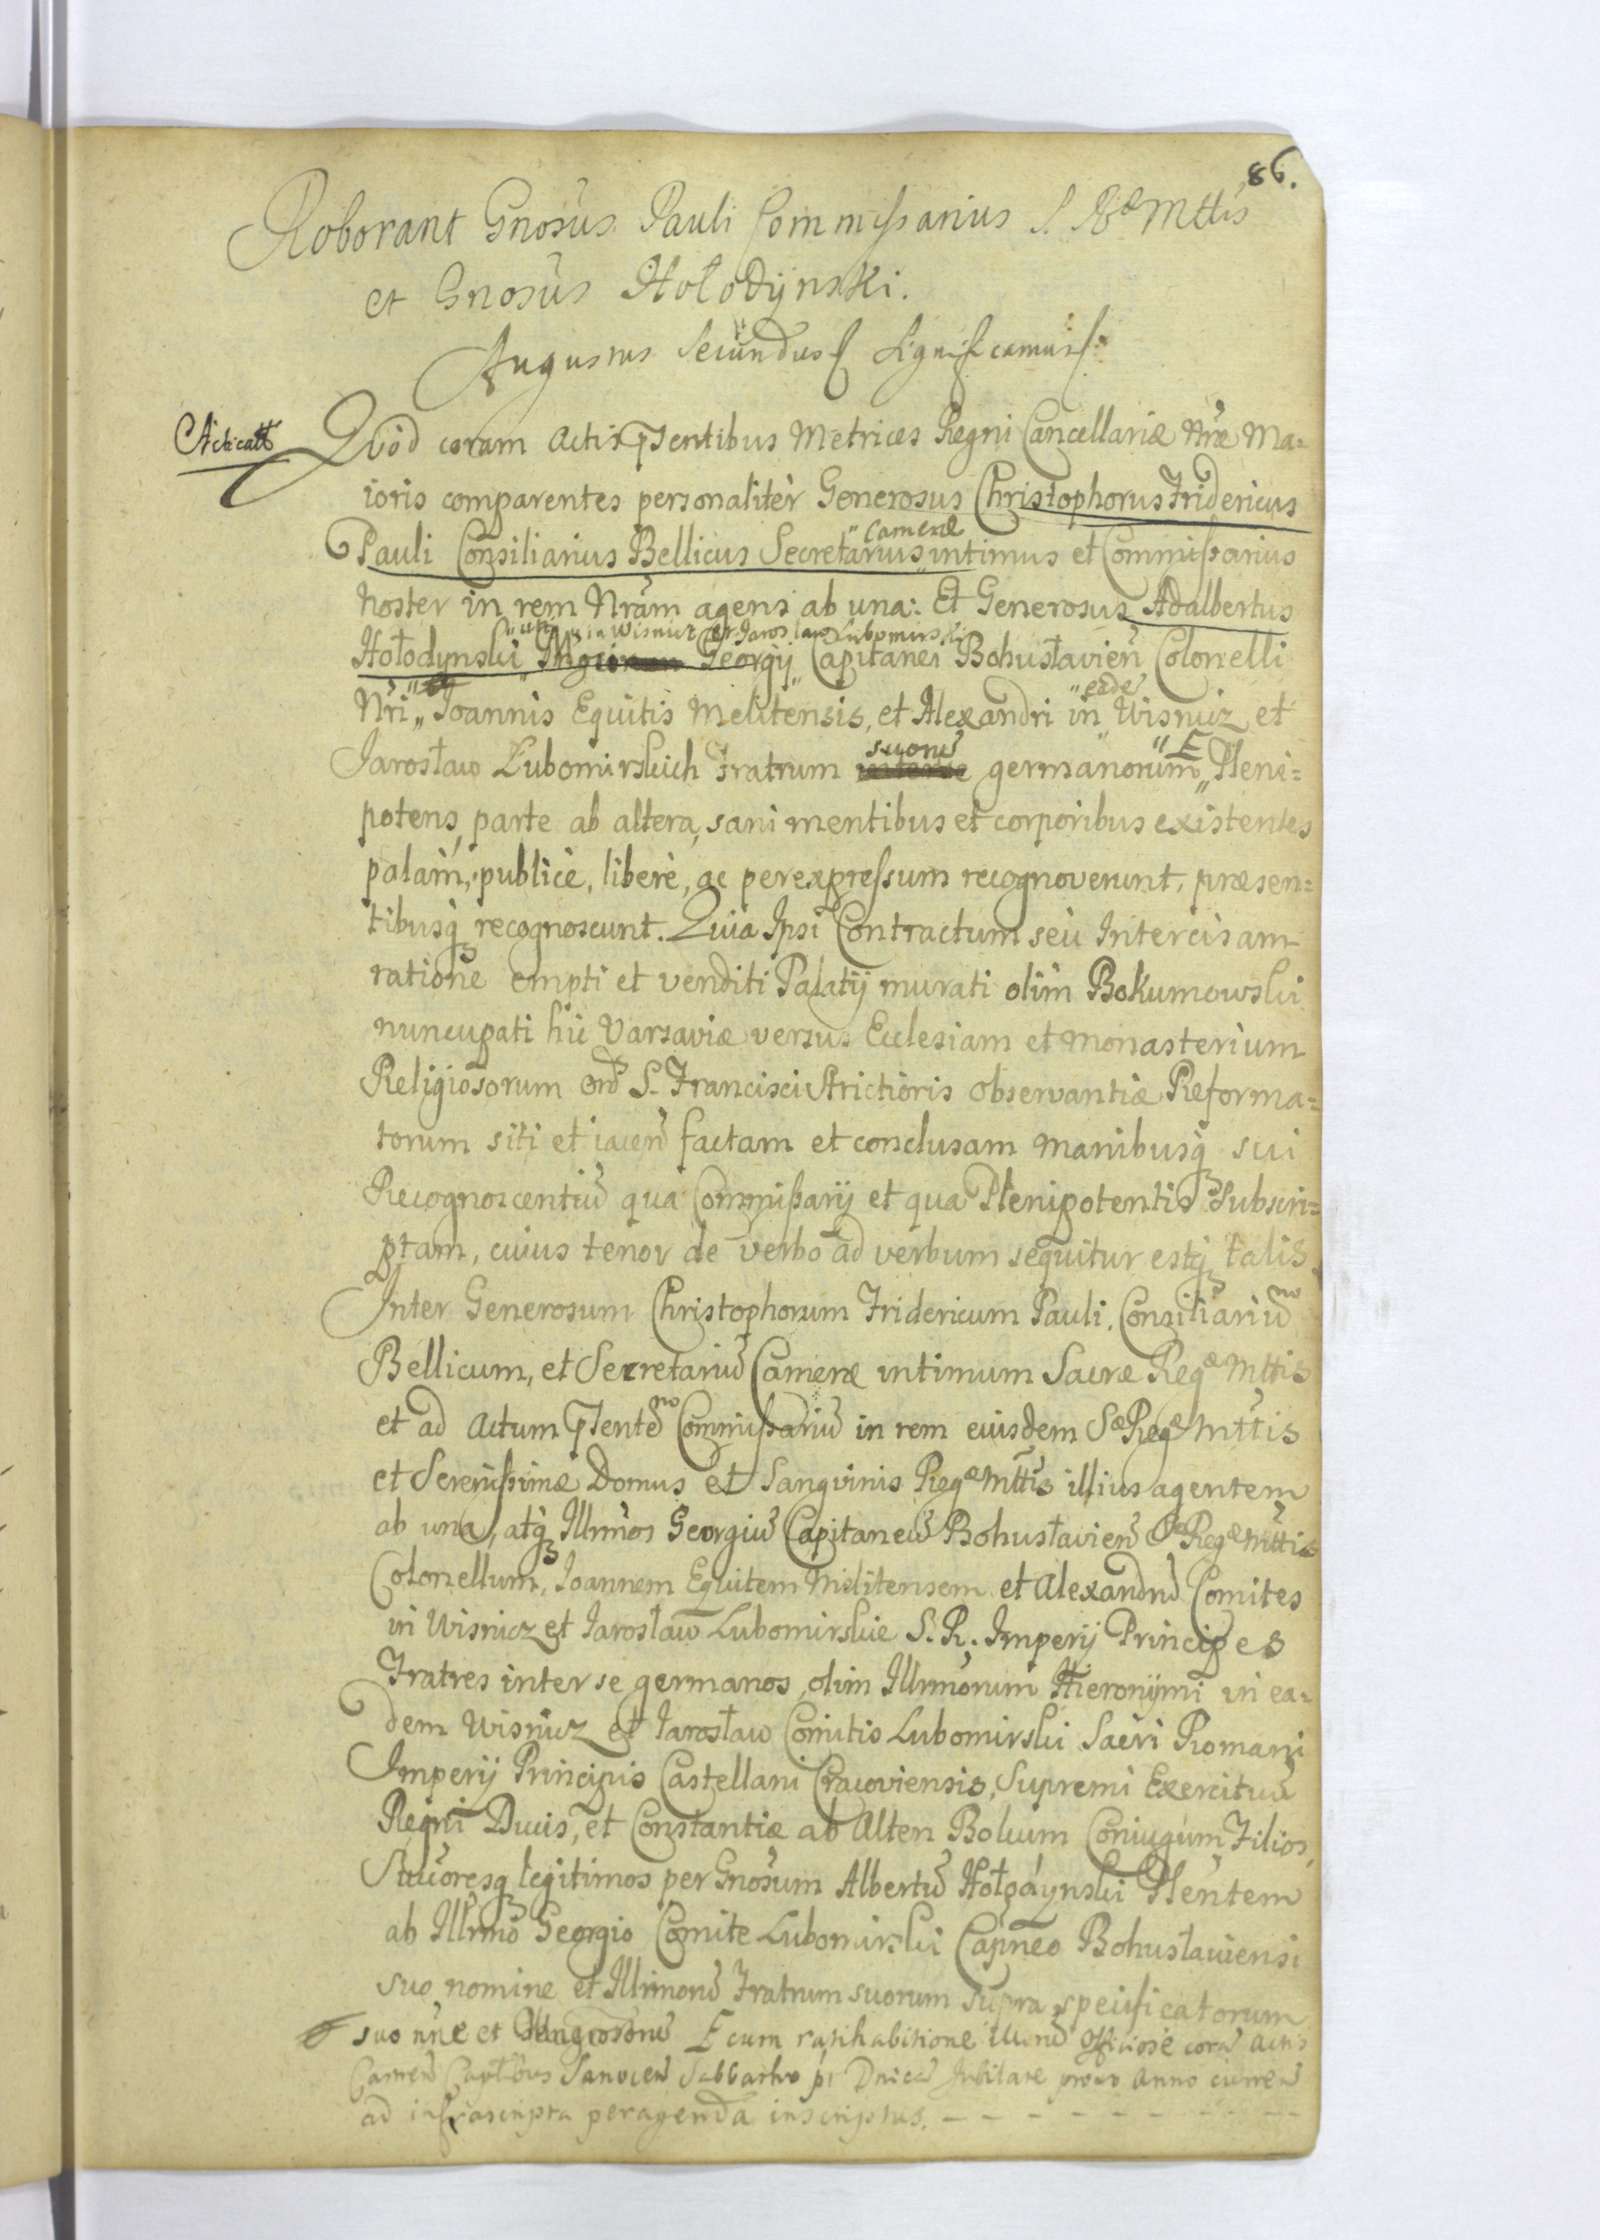 86.
Roborant Gnosus Pauli Commissarius S. Ræ Mttis
et Gnosus Hołodynski.
Augustus Secundus Significamus
Acticatt
Quod coram actis psentibus Metrices Regni Cancellariæ Nræ Ma=
ioris comparentes personaliter Generosus Christophorus Fridericus
" Cameræ
Pauli Consiliarius Bellicus Secretarius " intimus et Commissarius
noster in rem Nram agens ab una: Et Generosus Adalbertus
in Wisnicz et Jarosław Lubomirski
Hołodynski " Georgij " Capitanei Bohusłavien Colonelli
" eade
Nri " Joannis Equitis Melitensis, et Alexandri in " Wisnicz et
suorũ " E
Jarosław Lubomirskich Fratrum germanorum " Pleni=
potens, parte ab altera, sani mentibus et corporibus existentes
palam, publicè, liberè, ac per expressum recognoverunt, præsen=
tibusq recognoscunt. Quia Ipsi Contractum seù Intercisam
ratione empti et venditi Palatij murati olim Bokumowski
nuncupati hic Varsaviæ versus Ecclesiam et Monasterium
Religiosorum Ord S. Francisci Strictioris Observantiæ Reforma=
torum siti et iacen factam et conclusam manibusq sui
Recognoscentiũ qua Commissarij et qua Plenipotentis Subscri=
ptam, cuius tenor de verbo ad verbum sequitur estq talis.
Inter Generosum Christophorum Fridericum Pauli, Consiliariũ
Bellicum, et Secretariũ Cameræ intimum Sacræ Regæ Mttis
et ad Actum psente Commissariũ in rem eiusdem Sæ Regæ Mttis
et Serenissimæ Domus et Sangvinis Regæ Mttis illius agentem
ab una, atq Illrmos Georgiũ Capitaneũ Bohusłavien Sæ Regæ Mttis
Colonellum, Joannem Equitem Melitensem et Alexandrũ Comites
in Wisnicz et Jarosław Lubomirskie S. R. Imperij Principes
Fratres inter se germanos, olim Illrmorum Hieronymi in ea=
dem Wisnicz et Jarosław Comitis Lubomirski Sacri Romani
Imperij Principis Castellani Cracoviensis, Supremi Exercituũ
Regni Ducis, et Constantiæ ab Alten Bokum Coniugum Filios,
Succoresq legitimos per Gnosum Albertũ Hołodynski Plentem
ab Illrmo Georgio Comite Lubomirski Capneo Bohusłaviensi
suo nomine et Illrmorũ Fratrum suorum supra specificatorum
suo nne et E cum ratihabitione illorũ officiose corã actis
Castren Captlbus Sanocen Sabbatho p Dnica Jubilate anno curren
ad infrascripta peragenda inscriptus. - - - - - - - - -